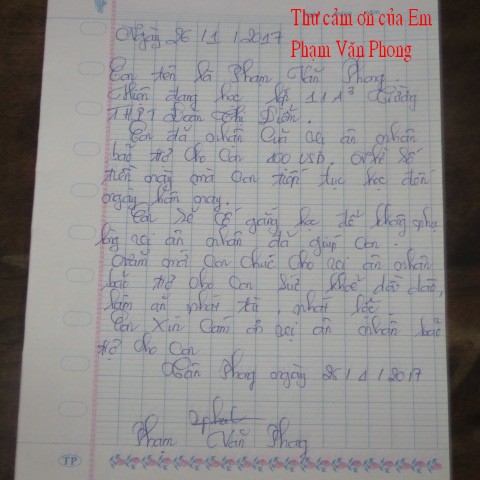 Thư cảm ơn của Em
Phạm Văn Phong
Ngày 26/1/2017
Con tên là Phạm Văn Phong.
Hiện đang học lớp 11A3 trường
THPT Đoàn Thị Điểm.
Con đã nhận của vị ân nhân
bảo trợ cho con 100 USD. Nhờ số
tiền này mà con tiếp tục học đến
ngày hôm nay.
Con sẽ cố gắng học để không phụ
lòng vị ân nhân đã giúp con.
Năm mới con chúc cho vị ân nhân
bảo trợ cho con sức khỏe dồi dào,
làm ăn phát tài, phát lộc.
Con xin cảm ơn vị ân nhân bảo
trợ cho con
Tân Phong ngày 26/1/2017
Phạm Văn Phong
TP